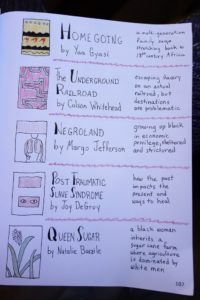 HOMEGOING
by Yaa Gyasi
a multi-generation
family saga
stretching back to
18th century Africa
THE UNDERGROUND
RAILROAD
by Colson Whitehead
escaping slavery
on an actual
railroad, but
destinations
are problematic
NEGROLAND
by Margo Jefferson
growing up black
in economic
privilege, sheltered
and strictured
POST TRAUMATIC
SLAVE SYNDROME
by Joy DeGruy
how the past
impacts the
present and
ways to heal
QUEEN SUGAR
by Natalie Baszile
a black woman
inherits a
sugar cane farm
where agriculture
is dominated by
white men
107